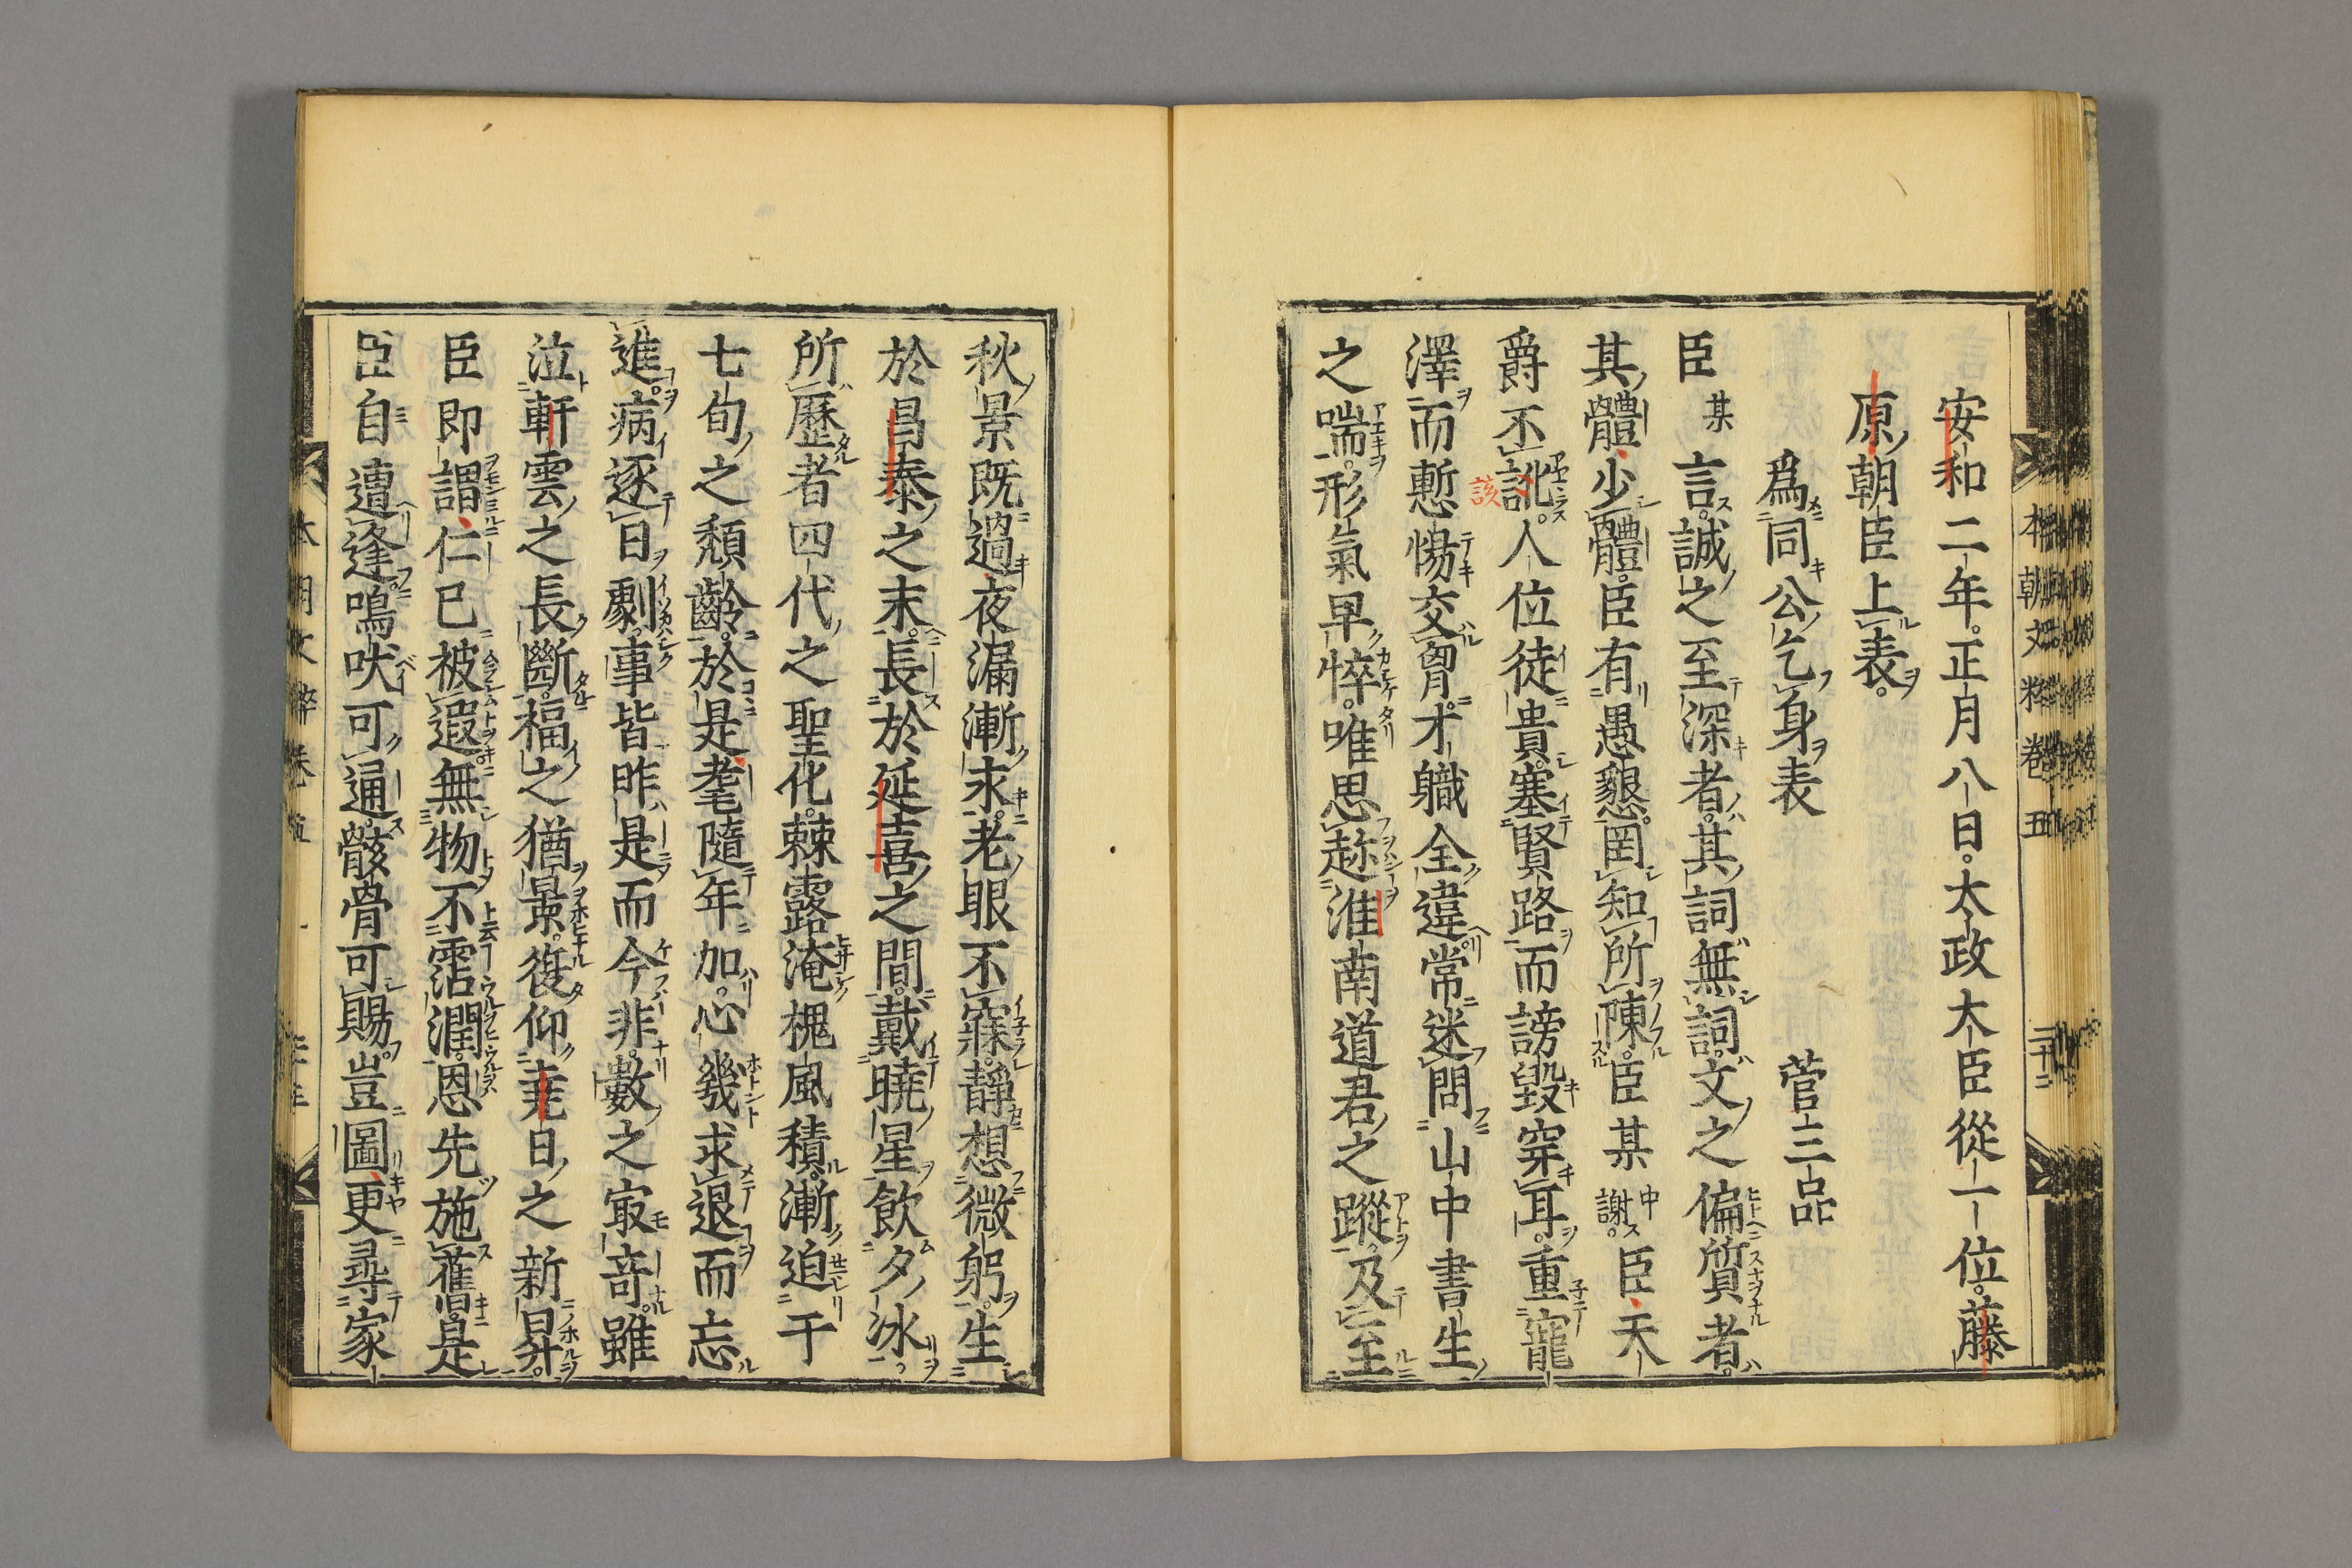 安和二年。正月八日。太政大臣從一位。藤
原朝臣上表。
爲同公乞身表 菅三品
臣某言。誠之至深者。其詞無詞。文之偏質者。
其體少體。臣有愚懇。罔知所陳。臣某中謝。臣天
爵不訛。人位徒貴。塞賢路而謗毀穿耳。重寵
該
澤而慙惕交胷。才軄全違。常迷問山中書生
之喘。形氣早悴。唯思趂淮南道君之蹤。及至
秋景既過夜漏漸永。老眼不寐。靜想微躬。生
於昌泰之末。長於延喜之間。戴曉星飲夕冰。
所歷者四代之聖化。棘露淹槐風積。漸迫于
七旬之頽齡。於是耄隨年加。心幾求退而忘
進。病逐日劇。事皆昨是而今非。數之㝡竒。雖
泣軒雲之長斷。福之猶景。復仰堯日之新昇。
臣即謂仁已被遐。無物不霑潤。恩先施舊。是
臣自遭逢。鳴吠可通。骸骨可賜。豈圖更尋家
本朝文粹卷五 二十二